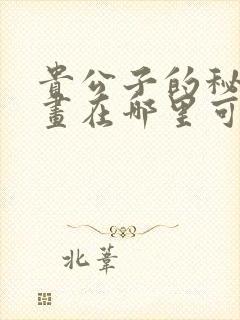 貴公子的秘
畫在哪里可
北葦